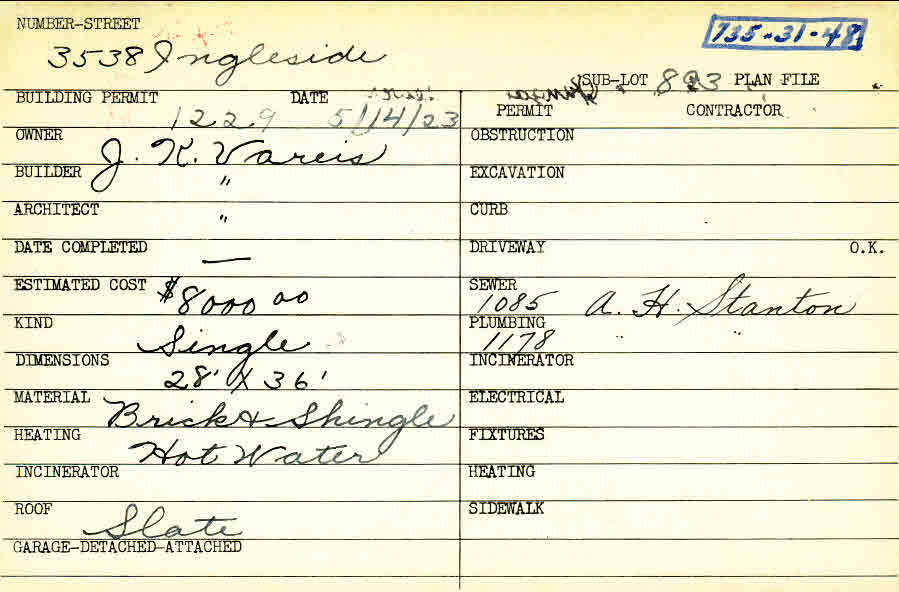 NUMBER-STREET
3538 Ingleside
735-31-48
SUB-LOT 823 PLAN FILE
BUILDING PERMIT DATE
1229 5/14/23
PERMIT CONTRACTOR
OWNER J. K. Vareis
OBSTRUCTION
BUILDER "
EXCAVATION
ARCHITECT "
CURB
DATE COMPLETED —
DRIVEWAY O.K.
ESTIMATED COST $8000 00
SEWER
1085 A. H. Stanton
KIND Single
PLUMBING
1178 " "
DIMENSIONS 28' X 36'
INCINERATOR
MATERIAL Brick & Shingle
ELECTRICAL
HEATING Hot Water
FIXTURES
INCINERATOR
HEATING
ROOF Slate
SIDEWALK
GARAGE-DETACHED-ATTACHED